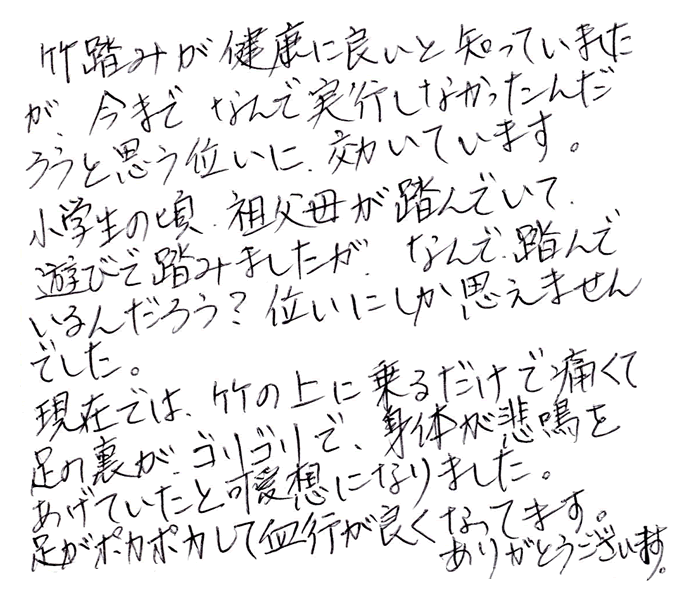 竹踏みが健康に良いと知っていました
が、今まで なんで実行しなかったんだ
ろうと思う位いに、効いています。
小学生の頃、祖父母が踏んでいて、
遊びで踏みましたが、なんで、踏んで
いるんだろう？位いにしか思えません
でした。
現在では、竹の上に乗るだけで痛くて
足の裏が、ゴリゴリで、身体が悲鳴を
あげていたと可愛想になりました。
足がポカポカして血行が良くなってます。
ありがとうございます。